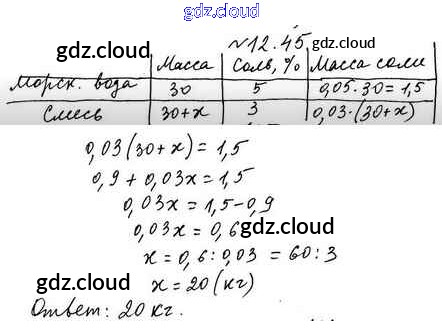 gdz.cloud
№12.45
gdz.cloud gdz.cloud
Масса Соль, % Масса соли
Морск. вода 30 5 0,05·30=1,5
Смесь 30+x 3 0,03·(30+x)
0,03(30+x)=1,5
0,9+0,03x=1,5
0,03x=1,5-0,9
0,03x=0,6
gdz.cloud gdz.cloud
x=0,6:0,03=60:3
gdz.cloud x=20(кг)
Ответ: 20 кг. gdz.cloud